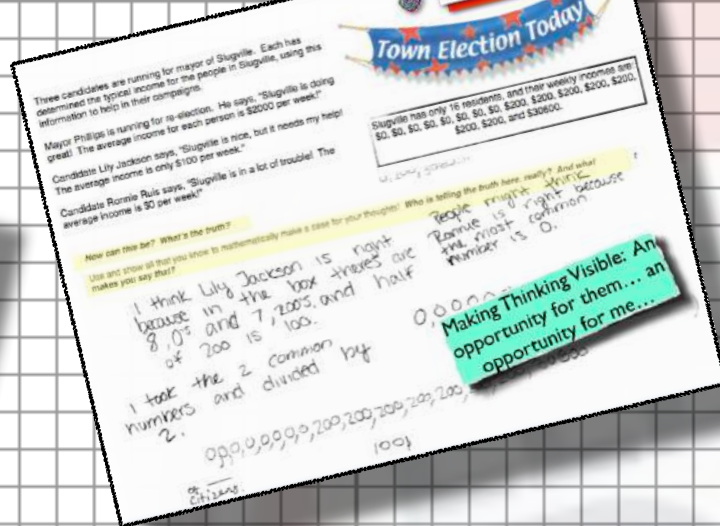 Town Election Today
Three candidates are running for mayor of Slugville. Each has
determined the typical income for the people in Slugville, using this
information to help in their campaigns.
Mayor Phillips is running for re-election. He says, "Slugville is doing
great! The average income for each person is $2000 per week!"
Candidate Lily Jackson says, "Slugville is nice, but it needs my help!
The average income is only $100 per week."
Candidate Ronnie Ruis says, "Slugville is in a lot of trouble! The
average income is $0 per week!"
Slugville has only 16 residents, and their weekly incomes are:
$0, $0, $0, $0, $0, $0, $0, $0, $200, $200, $200, $200, $200,
$200, $200, and $30600.
How can this be? What's the truth?
Use and show all that you know to mathematically make a case for your thoughts! Who is telling the truth here, really? And what
makes you say that?
I think Lily Jackson is right
because in the box theres are
8, 0's and 7, 200's, and half
of 200 is 100.
I took the 2 common
numbers and divided by
2.
People might think
Ronnie is right because
the most common
number is 0.
0,0,0,0
Making Thinking Visible: An
opportunity for them... an
opportunity for me...
0,0,0,0,0,0,0,0,200,200,200,200,200
100
# of
citizens